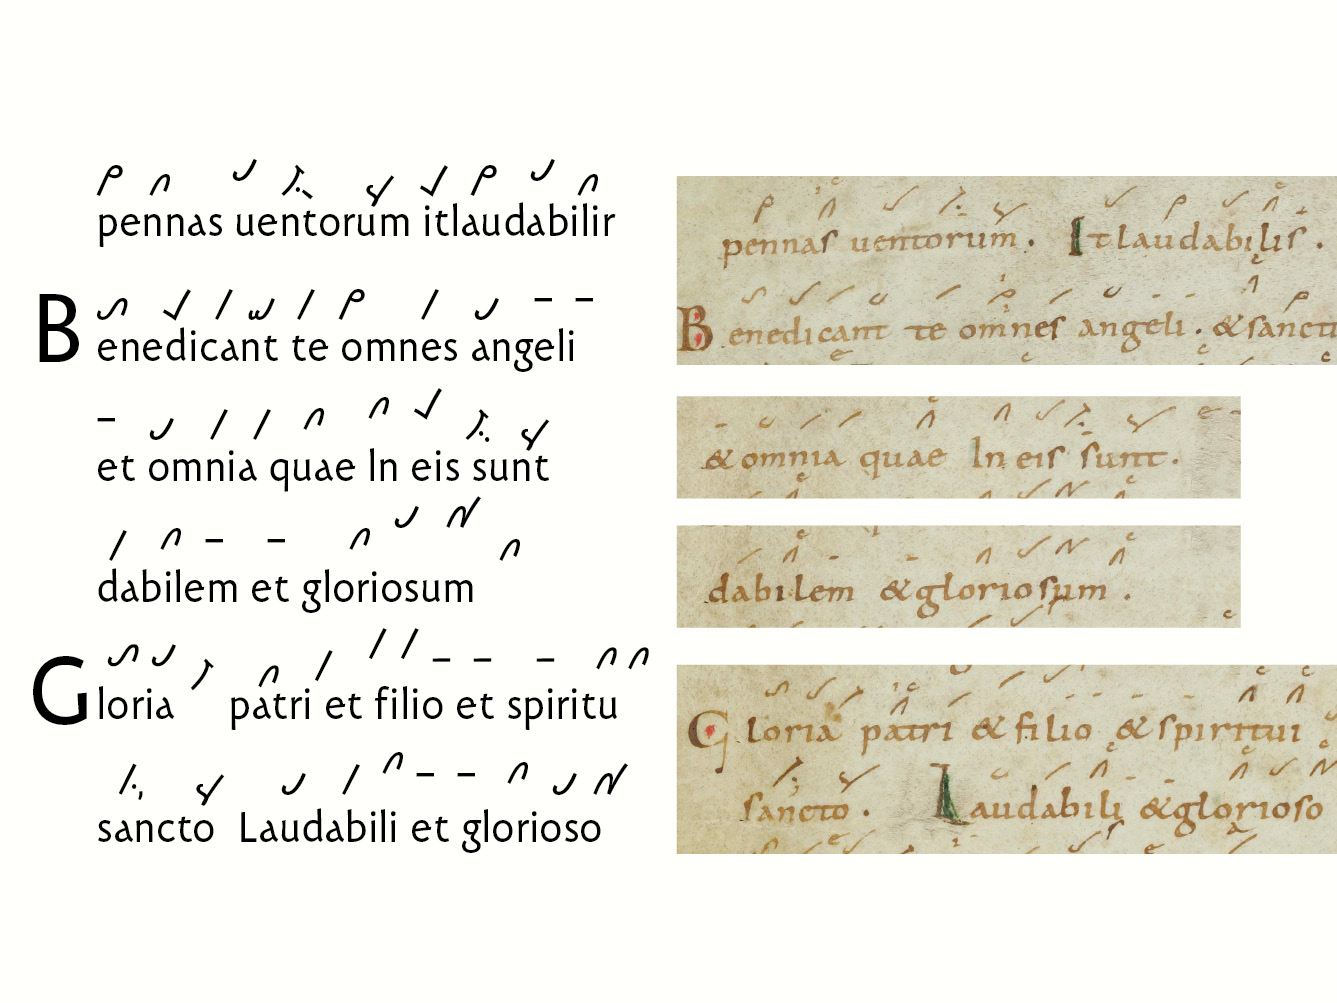 pennas uentorum itlaudabilir
Benedicant te omnes angeli
et omnia quae In eis sunt
dabilem et gloriosum
Gloria patri et filio et spiritu
sancto Laudabili et glorioso
pennas uentorum. Itlaudabilis.
Benedicant te omnes angeli. &sanctı
&omnia quae In eis sunt.
dabilem &gloriosum.
Gloria patri & filio & spiritui
sancto. Laudabili &glorioso